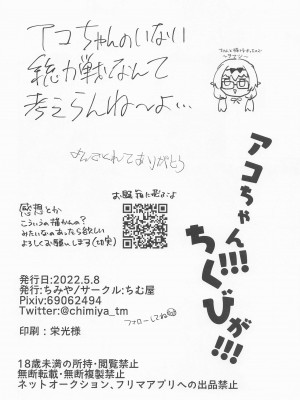 アコちゃんのいない
総力戦なんて
考えらんね〜よ…
よんでくれてありがとう
お題箱だよ
感想とか
こういうの描かんの？
みたいなのあったら欲しい
よろしくお願いします(切実)
アコちゃん!!!
ちくびが!!!
発行日:2022.5.8
発行:ちみや/サークル:ちむ屋
Pixiv:69062494
Twitter:@chimiya_tm
フォローしてね
印刷：栄光様
18歳未満の所持・閲覧禁止
無断転載・無断複製禁止
ネットオークション、フリマアプリへの出品禁止